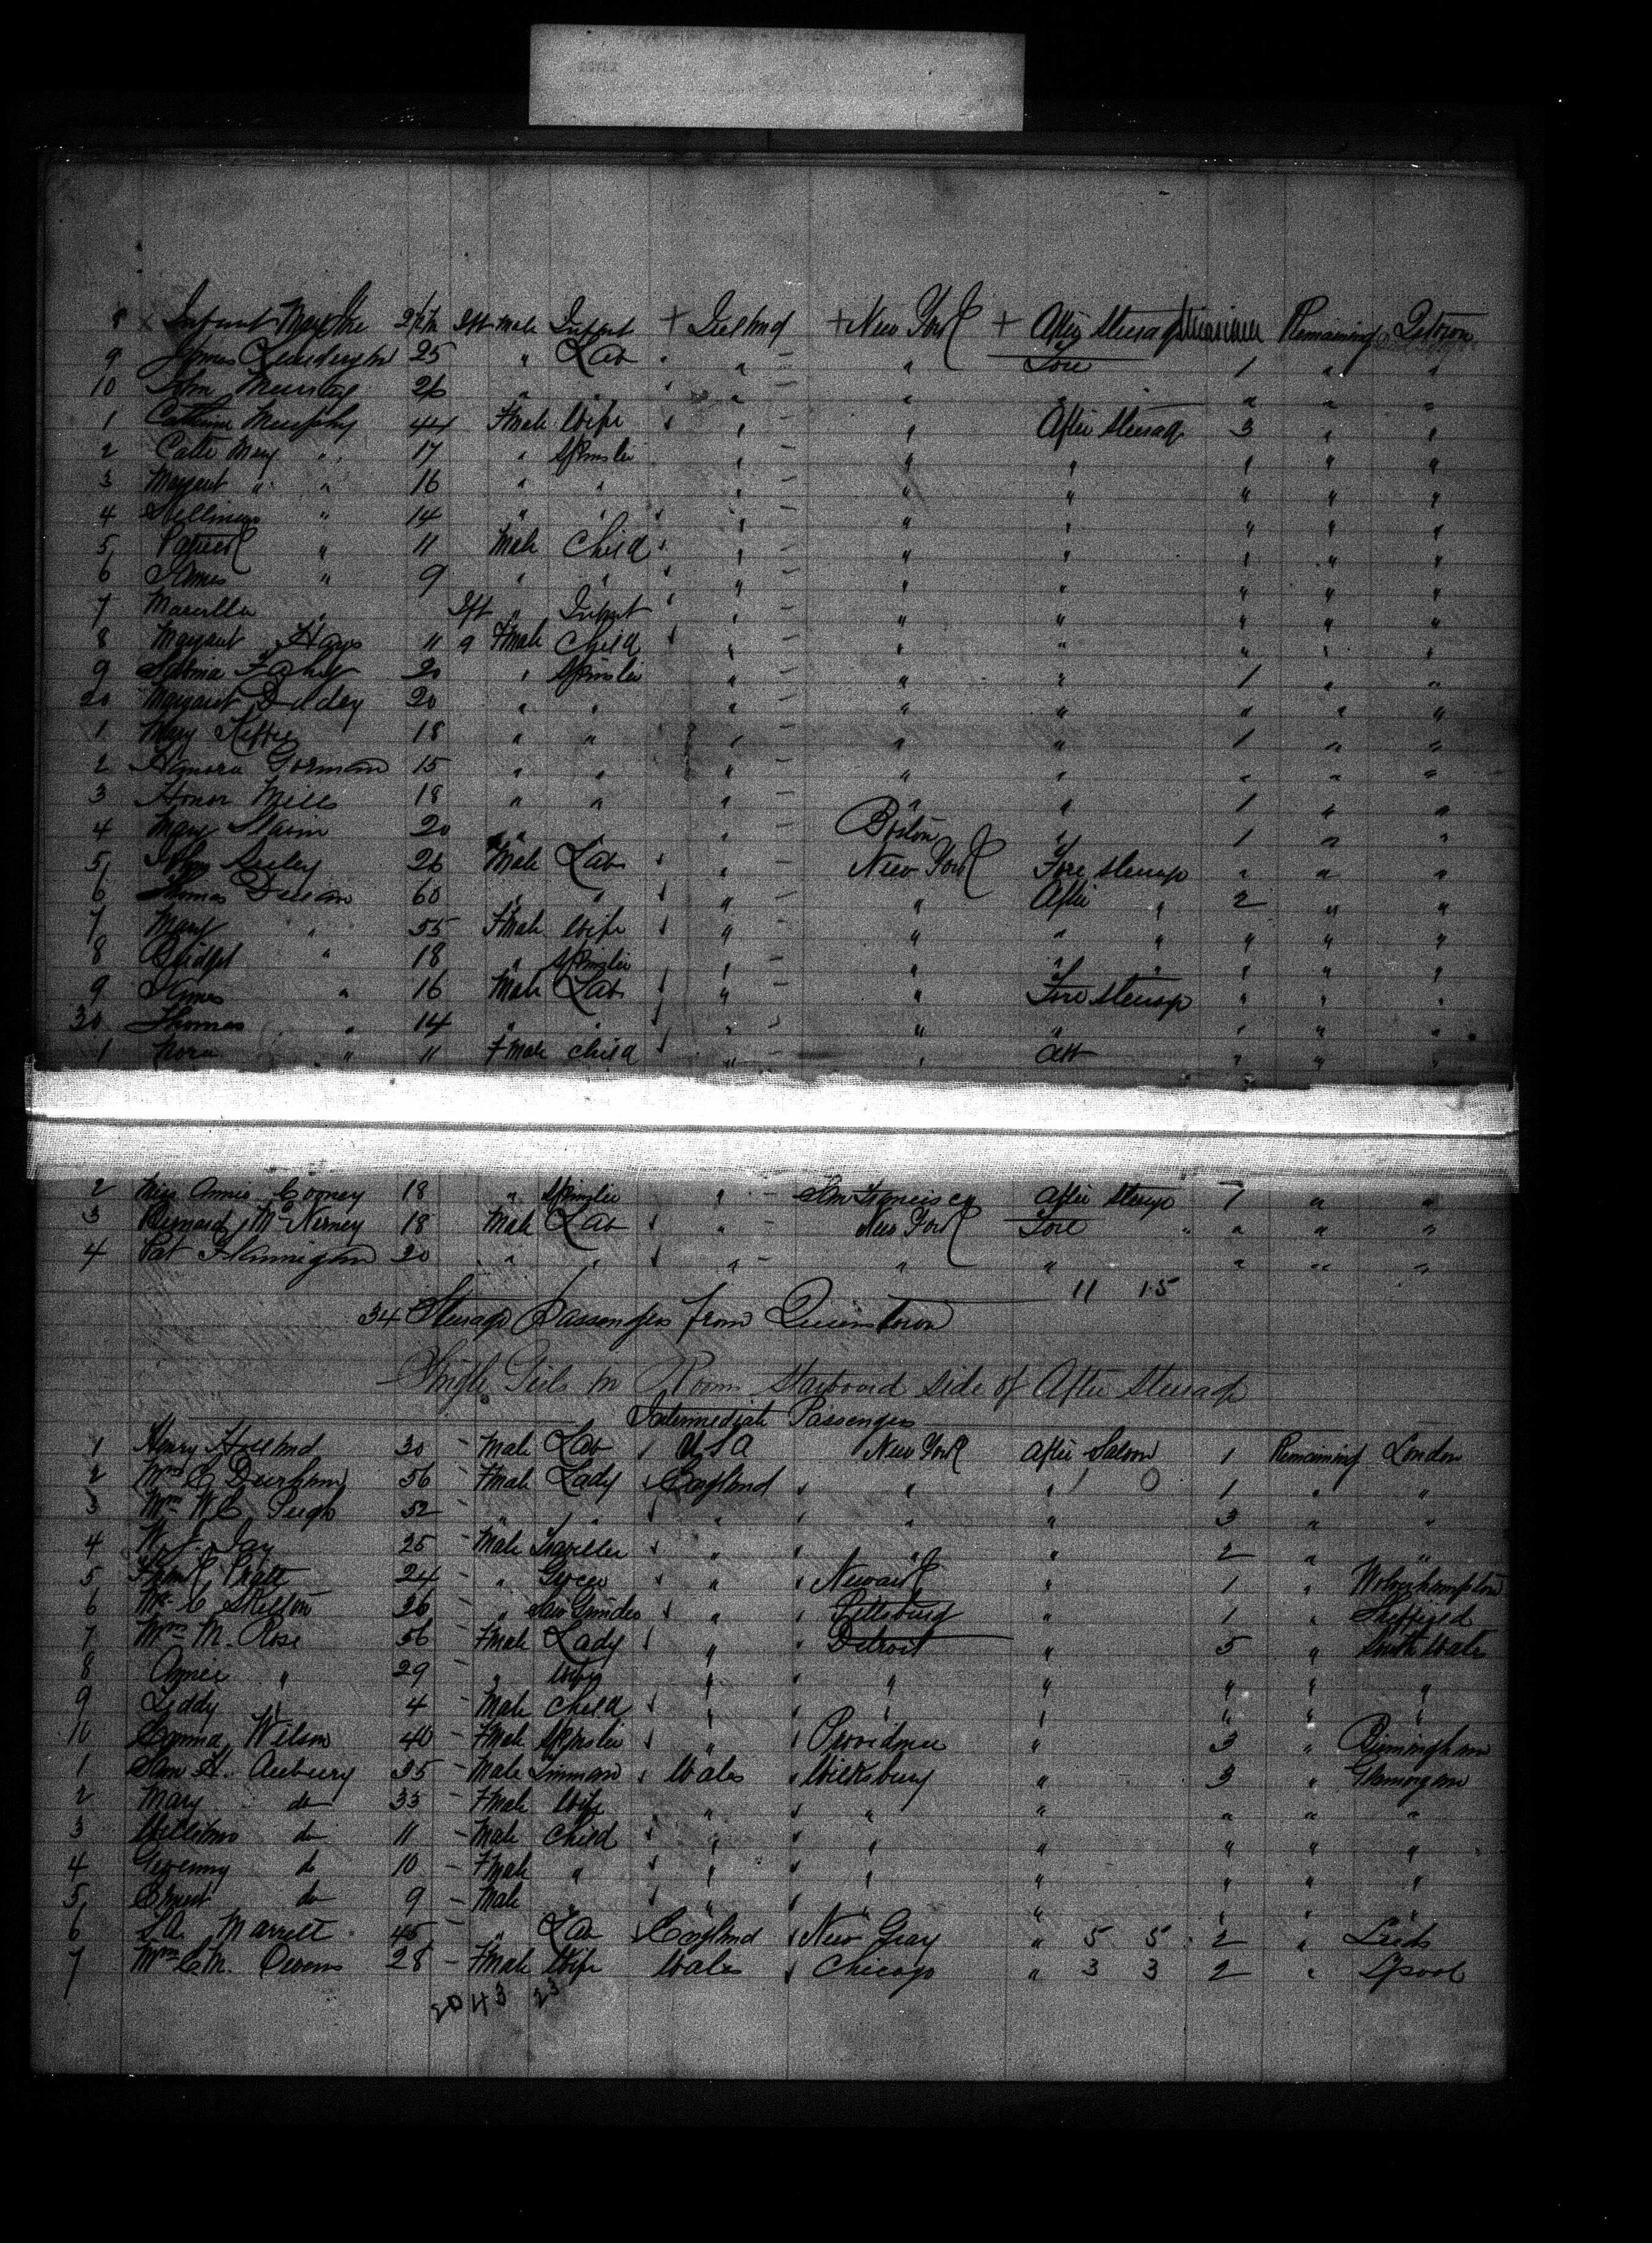 8 Infant 2½m Ift male Infant + Ireland + New York + After Steerage Remaining Qstown
9 James 25 " Lab " " " Fore 1 " "
10 John Murray 26 " " " " " " " "
1 Catherine Murphy 44 Fmale Wife " " After Steerage 3 " "
2 Cath Mary " 17 " Spinster " " " " " "
3 Margaret " " 16 " " " " " " " "
4 " 14 " " " " " " " "
5 Patrick " 11 Male Child " " " " " "
6 James " 9 " " " " " " " "
7 " Ift " Infant " " " " " "
8 Margaret Hays 11 9 Fmale Child " " " " " "
9 Fahy 20 " Spinster " " " 1 " "
20 Margaret 20 " " " " " " " "
1 Mary 18 " " " " " 1 " "
2 Hanora Gorman 15 " " " " " " " "
3 Honor Mills 18 " " " " " 1 " "
4 Mary Slavin 20 " " " Boston " 1 " "
5 John 26 Male Lab " New York Fore Steerage " " "
6 Thomas 60 " " " " After " 2 " "
7 Mary " 55 Fmale Wife " " " " " " "
8 Bridget " 18 " Spinster " " " " " " "
9 James " 16 Male Lab " " Fore Steerage " " "
30 Thomas " 14 " " " " " " " "
1 Nora " 11 Fmale Child " " Aft " " "
2 Miss Annie Cooney 18 " Spinster " San Francisco After Steerage 1 " "
3 Bernard McNerney 18 Male Lab " New York Fore " " "
4 Pat Flannigan 20 " " " " " " " "
11 15
34 Steerage Passengers from Queenstown
Single Girls in Room Starboard side of After Steerage
Intermediate Passengers
1 Henry Holland 30 Male Lab USA New York After Saloon 1 Remaining London
2 Mrs C Durham 56 Fmale Lady England " " 1 " "
3 Mrs W C Pugh 52 " " " " " 3 " "
4 W. J. Jay 25 Male Traveller " " " 2 " "
5 Frank Pratt 24 " Grocer " Newark " 1 " Wolverhampton
6 Mr C Skelton 26 " Saw Grinder " Pittsburg " 1 " Sheffield
7 Mrs M. Rose 56 Fmale Lady " Detroit " 5 " South Wales
8 Agnes " 29 " Wife " " " " " "
9 4 Male Child " " " " " "
10 Emma Wilson 40 Fmale Spinster " Providence " 3 " Birmingham
1 Sam H. Aubury 35 Male Tinman Wales Wicksburg " 3 " Glamorgan
2 Mary do 33 Fmale Wife " " " " " "
3 William do 11 Male Child " " " " " "
4 do 10 Fmale " " " " " " "
5 Ernest do 9 Male " " " " " " "
6 Marrett 45 " Lab England New Gray " 5 5 2 " Leeds
7 Mrs C M. Owens 28 Fmale Wife Wales Chicago " 3 3 2 " Lpool
20 43 23